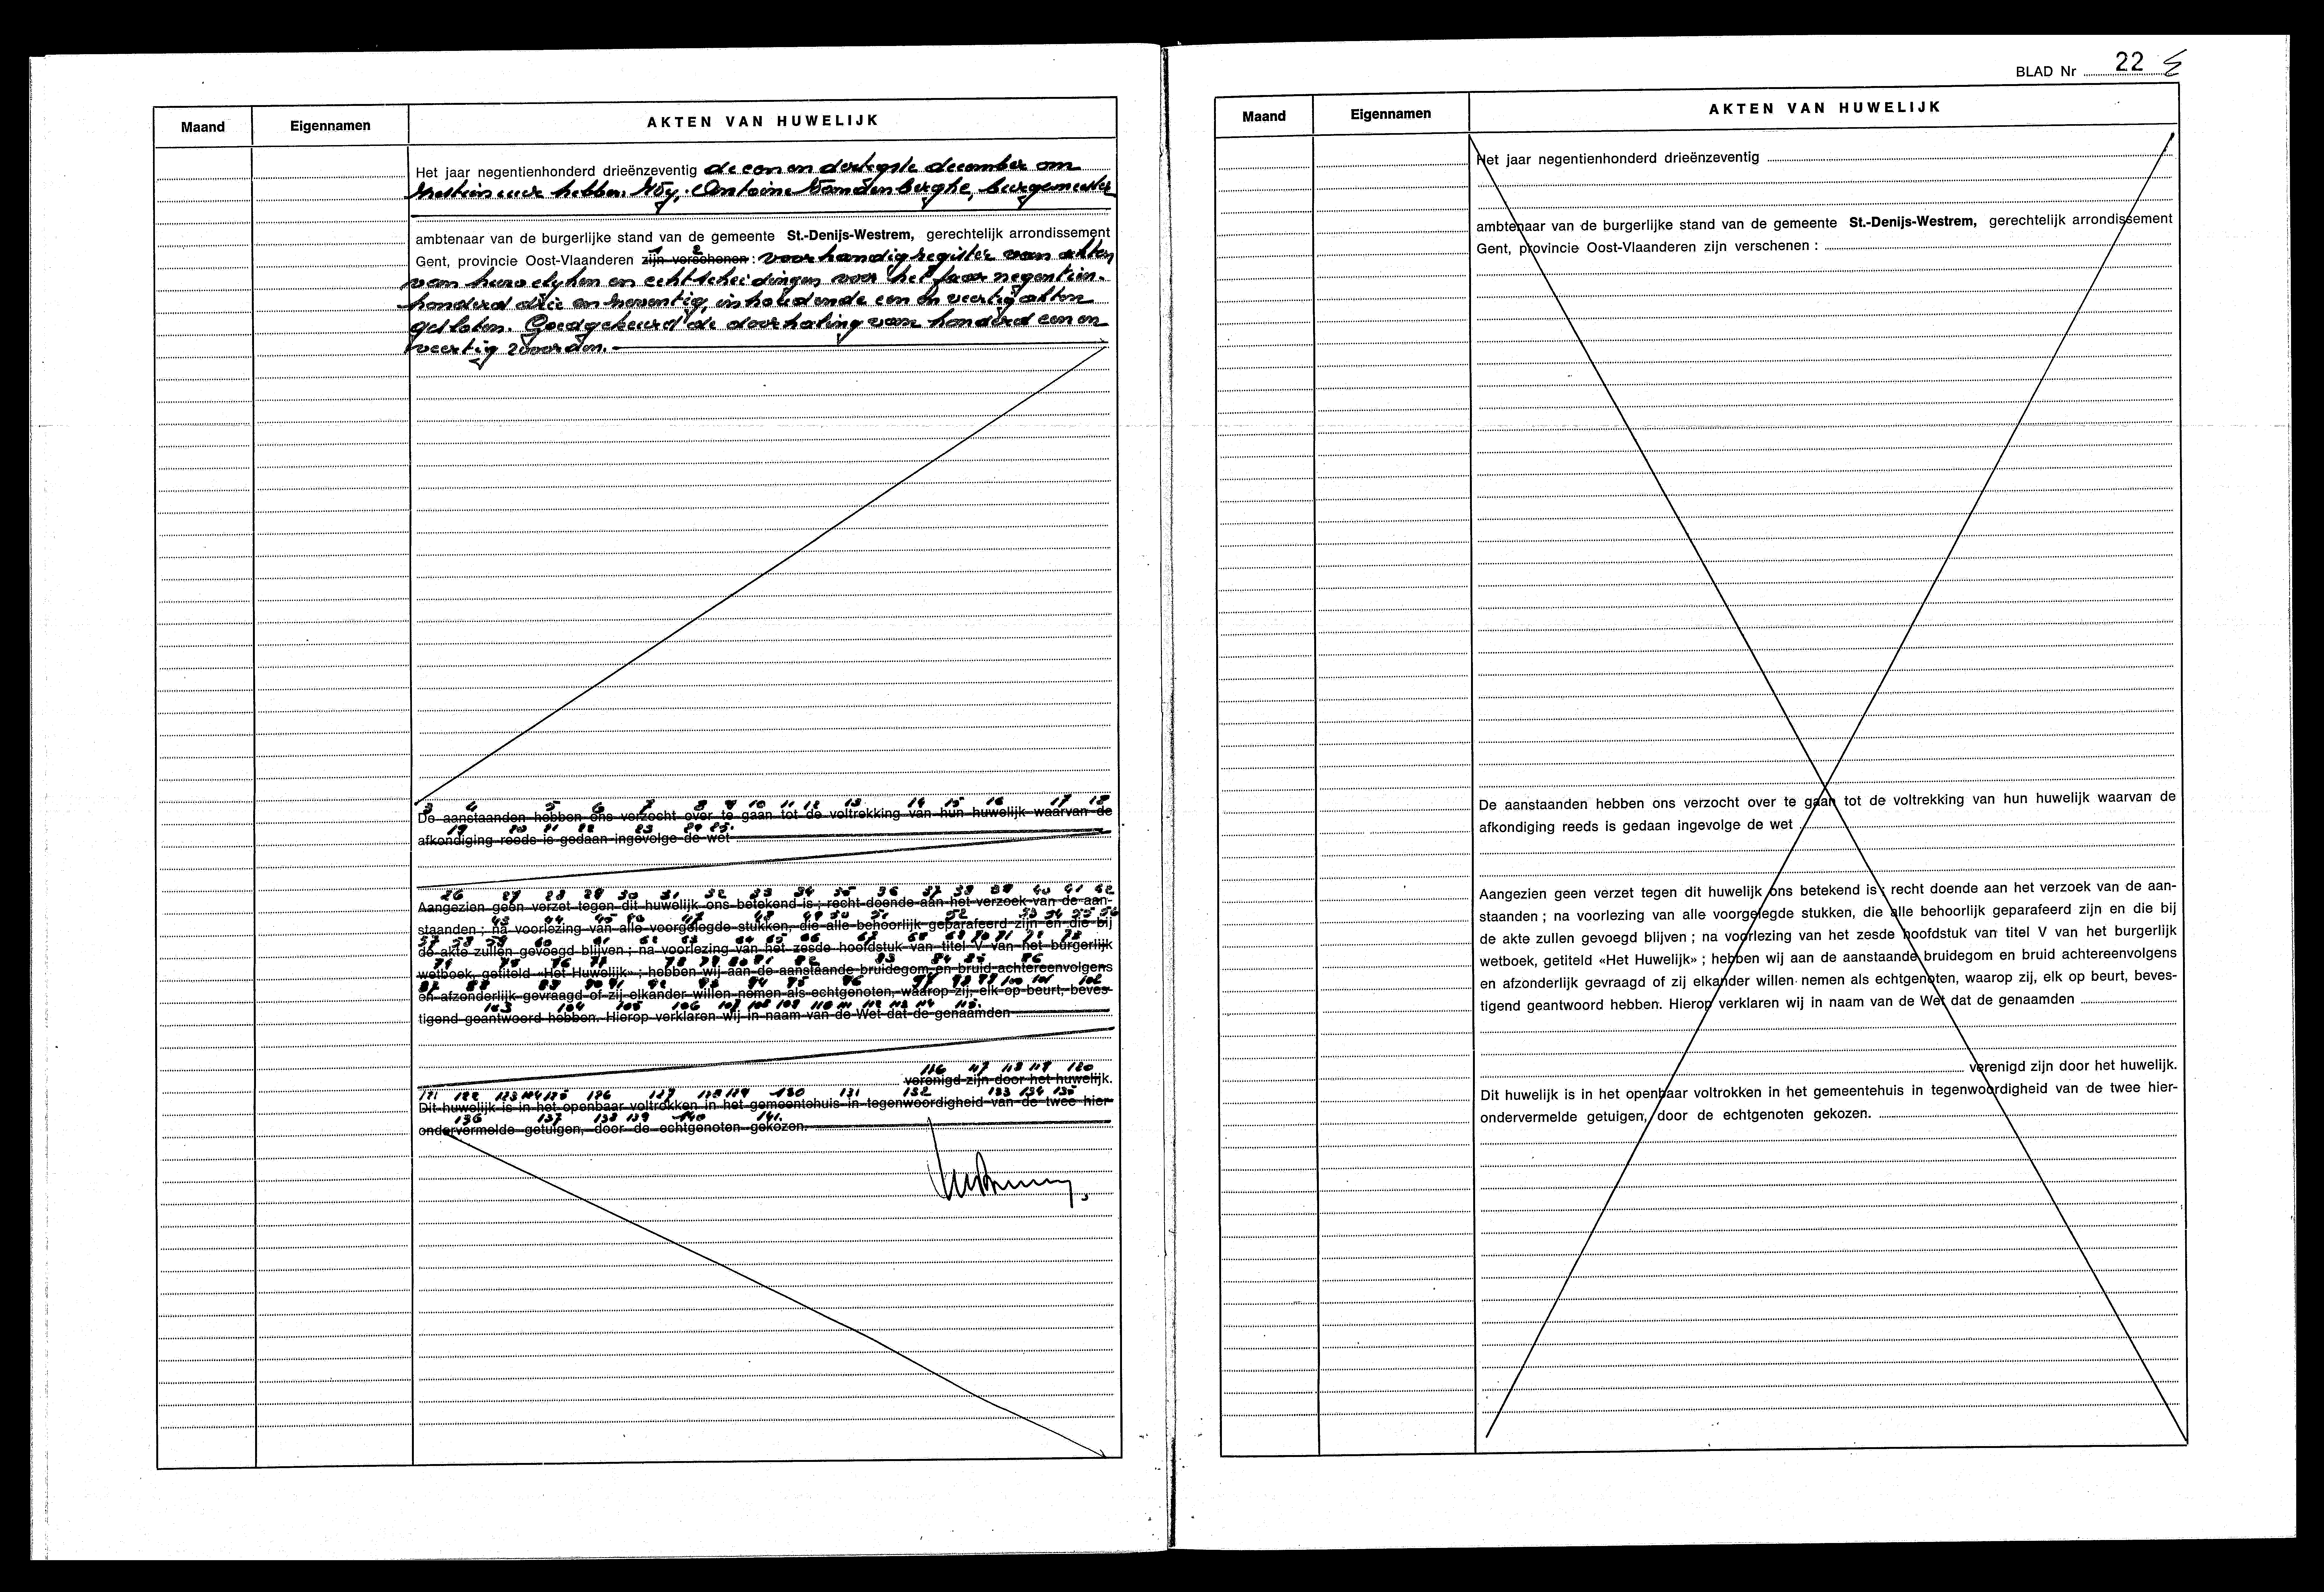 Maand
Eigennamen
AKTEN VAN HUWELIJK
Het jaar negentienhonderd drieënzeventig de een en dertigste december om
zestien uur hebben Wij, Antoine Vandenberghe, burgemeester
ambtenaar van de burgerlijke stand van de gemeente St.-Denijs-Westrem, gerechtelijk arrondissement
1 2
Gent, provincie Oost-Vlaanderen zijn verschenen : voorhandig register van akten
van huwelijken en echtscheidingen voor het jaar negentien-
honderd drie en zeventig, inhoudende een en veertig akten
gesloten. Goedgekeurd de doorhaling van honderd een en
veertig woorden.
3 4 5 6 7 8 9 10 11 12 13 14 15 16 17 18
De aanstaanden hebben ons verzocht over te gaan tot de voltrekking van hun huwelijk waarvan de
19 20 21 22 23 24 25.
afkondiging reeds is gedaan ingevolge de wet
26 27 28 29 30 31 32 33 34 35 36 37 38 39 40 41 42
Aangezien geen verzet tegen dit huwelijk ons betekend is ; recht doende aan het verzoek van de aan-
43 44 45 46 47 48 49 50 51 52 53 54 55 56
staanden ; na voorlezing van alle voorgelegde stukken, die alle behoorlijk geparafeerd zijn en die bij
57 58 59 60 61 62 63 64 65 66 67 68 69 70 71 72 73
de akte zullen gevoegd blijven ; na voorlezing van het zesde hoofdstuk van titel V van het burgerlijk
74 75 76 77 78 79 80 81 82 83 84 85 86
wetboek, getiteld «Het Huwelijk» ; hebben wij aan de aanstaande bruidegom en bruid achtereenvolgens
87 88 89 90 91 92 93 94 95 96 97 98 99 100 101 102
en afzonderlijk gevraagd of zij elkander willen nemen als echtgenoten, waarop zij, elk op beurt, beves-
103 104 105 106 107 108 109 110 111 112 113 114 115.
tigend geantwoord hebben. Hierop verklaren wij in naam van de Wet dat de genaamden
116 117 118 119 120
verenigd zijn door het huwelijk.
121 122 123 124 125 126 127 128 129 130 131 132 133 134 135
Dit huwelijk is in het openbaar voltrokken in het gemeentehuis in tegenwoordigheid van de twee hier-
136 137 138 139 140 141.
ondervermelde getuigen, door de echtgenoten gekozen.
BLAD Nr 22
Maand
Eigennamen
AKTEN VAN HUWELIJK
Het jaar negentienhonderd drieënzeventig
ambtenaar van de burgerlijke stand van de gemeente St.-Denijs-Westrem, gerechtelijk arrondissement
Gent, provincie Oost-Vlaanderen zijn verschenen :
De aanstaanden hebben ons verzocht over te gaan tot de voltrekking van hun huwelijk waarvan de
afkondiging reeds is gedaan ingevolge de wet
Aangezien geen verzet tegen dit huwelijk ons betekend is ; recht doende aan het verzoek van de aan-
staanden ; na voorlezing van alle voorgelegde stukken, die alle behoorlijk geparafeerd zijn en die bij
de akte zullen gevoegd blijven ; na voorlezing van het zesde hoofdstuk van titel V van het burgerlijk
wetboek, getiteld «Het Huwelijk» ; hebben wij aan de aanstaande bruidegom en bruid achtereenvolgens
en afzonderlijk gevraagd of zij elkander willen nemen als echtgenoten, waarop zij, elk op beurt, beves-
tigend geantwoord hebben. Hierop verklaren wij in naam van de Wet dat de genaamden
verenigd zijn door het huwelijk.
Dit huwelijk is in het openbaar voltrokken in het gemeentehuis in tegenwoordigheid van de twee hier-
ondervermelde getuigen, door de echtgenoten gekozen.